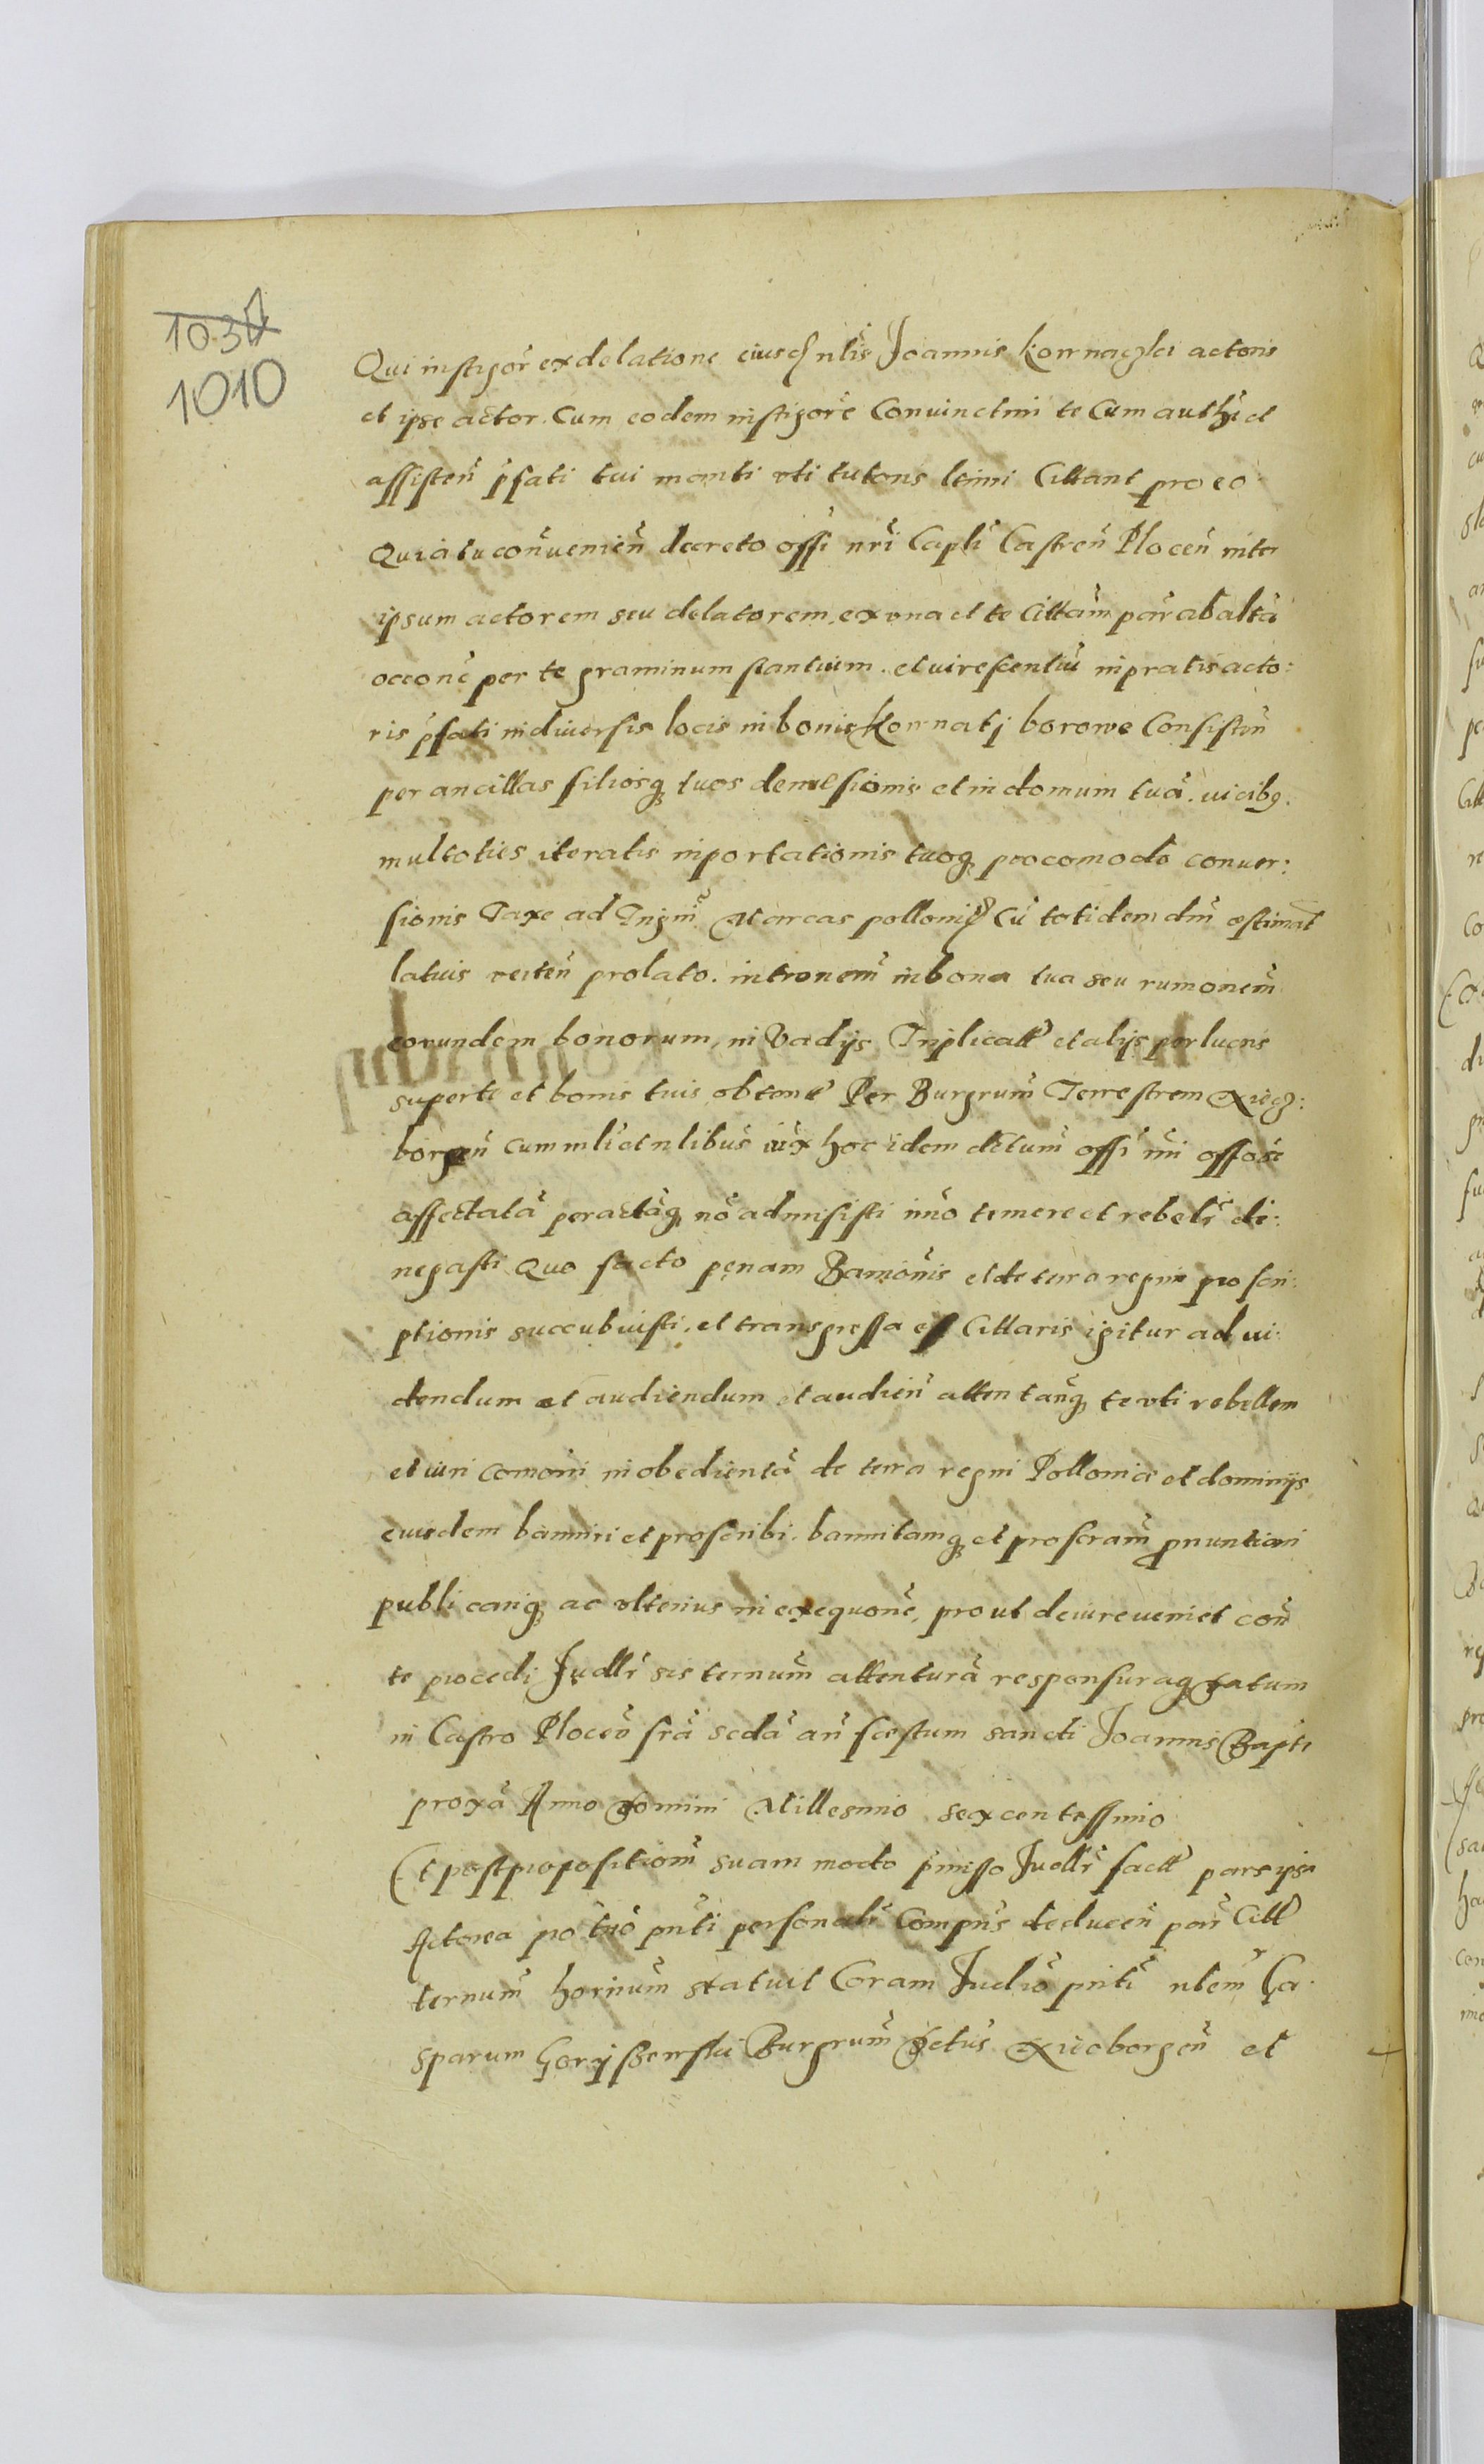 1030
1010
Qui instigor ex delatione eiusd nlis Joannis Kownaczki actoris
et ipse actor. Cum eodem instigore Convinctim te Cum auth et
assisten psati tui mariti uti tutoris ltimi Cittant pro eo
Quia tu convenien decreto offi nri Capli Castren Plocen inter
ipsum actorem seu delatorem, ex una et te Cittam par ab altä
occone per te graminum stantium. et virescentiu in pratis acto:
ris psati in diversis locis in bonis Kownatj borowe Consisten
per ancillas filiosq tuos demessionis et in domum tuä. vicibg.
multoties iteratis inportationis tuoq pro comodo conver:
sionis Taxe ad Trigm Marcas polloni cu totidem dm estimat
latius reiten prolato. intronem in bona tua seu rumonem
eorundem bonorum, in Vadijs Triplicatt et alijs per lucris
super te et bonis tuis obtent Per Burgrum Terrestrem Xiecz:
borgen cum mli et nlibus iux hoc idem dctum offi nri offose
affectatä peractäq nö admisisti imo temere et rebelr de:
negasti Quo facto penam Banionis et de terra regni proscri:
ptionis succubuisti. et transgressa es Cittaris igitur ad vi:
dendum et audiendum et audien atten tanq te uti rebellem
et iuri comoni inobedientä de terra regni Pollonia et dominijs
eiusdem banniri et proscribi. bannitamq et proscram pnuntiari
publicariq ac ulterius in exequone, prout de iure veniet con
te procedi Judlr sis ternum attenturä responsuraq Datum
in Castro Plocen fra secda an festum sancti Joannis Bapte
proxä Anno Domini Millesimo sexcentessimo
Et post propositiom suam modo pmisso Judlr factt pars ipsa
Actorea pro tnö pnti personalr Compns deducen par Citt
ternum hornum statuit Coram Judio pnti nlem Ca
sparum Goryszewski Burgrum Xiecborgen et